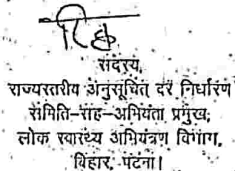 सदस्य,
राज्यस्तरीय अनुसूचित दर निर्धारण
समिति-सह-अभियंता प्रमुख,
लोक स्वास्थ्य अभियंत्रण विभाग,
बिहार, पटना।